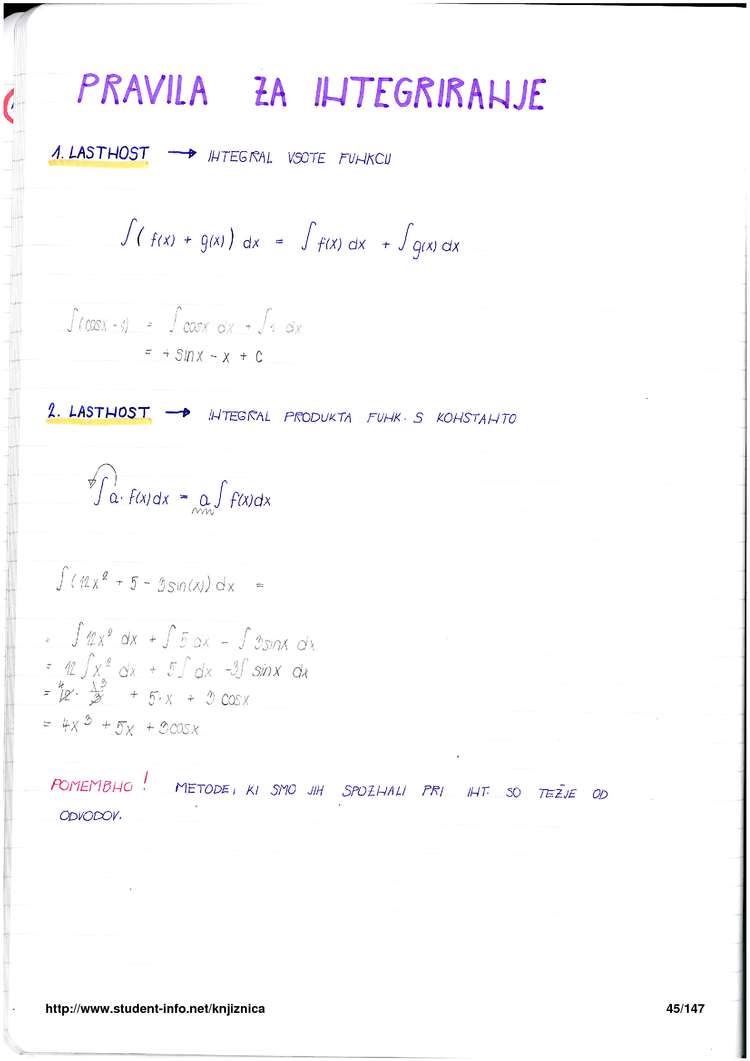 PRAVILA ZA INTEGRIRANJE
1. LASTNOST → INTEGRAL VSOTE FUNKCIJ
∫( f(x) + g(x)) dx = ∫ f(x) dx + ∫ g(x) dx
∫(cosx - 1) = ∫ cosx dx + ∫ 1 dx
= + sinx - x + C
2. LASTNOST → INTEGRAL PRODUKTA FUNK. S KONSTANTO
∫ a · f(x)dx = a ∫ f(x)dx
∫(12x² + 5 - 3sin(x)) dx =
= ∫12x² dx + ∫5 dx - ∫3sinx dx
= 12∫x² dx + 5∫ dx - 3∫ sinx dx
= 12⁴ · x³/3 + 5·x + 3 cosx
= 4x³ + 5x + 3cosx
POMEMBNO! METODE, KI SMO JIH SPOZNALI PRI INT. SO TEŽJE OD
ODVODOV.
http://www.student-info.net/knjiznica 45/147